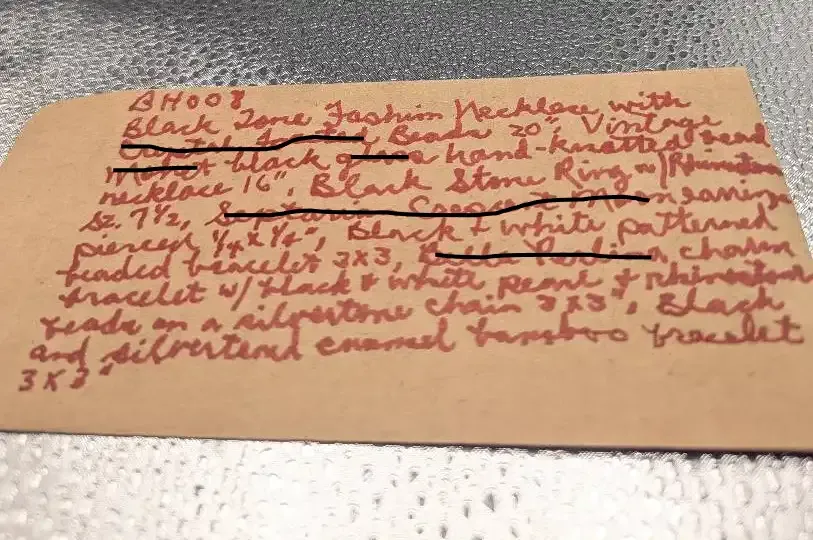 BH008
Black Tone Fashion Necklace with
Beads 20", Vintage
black hand-knotted bead
necklace 16", Black Stone Ring w/Rhinestone
sz. 7½, earrings
pierced ¼x¼", Black + white patterned
beaded bracelet 3x3, charm
bracelet w/ black + white pearl + rhinestone
beads on a silvertone chain 3x3", Black
and silvertoned enamel bamboo bracelet
3x3"